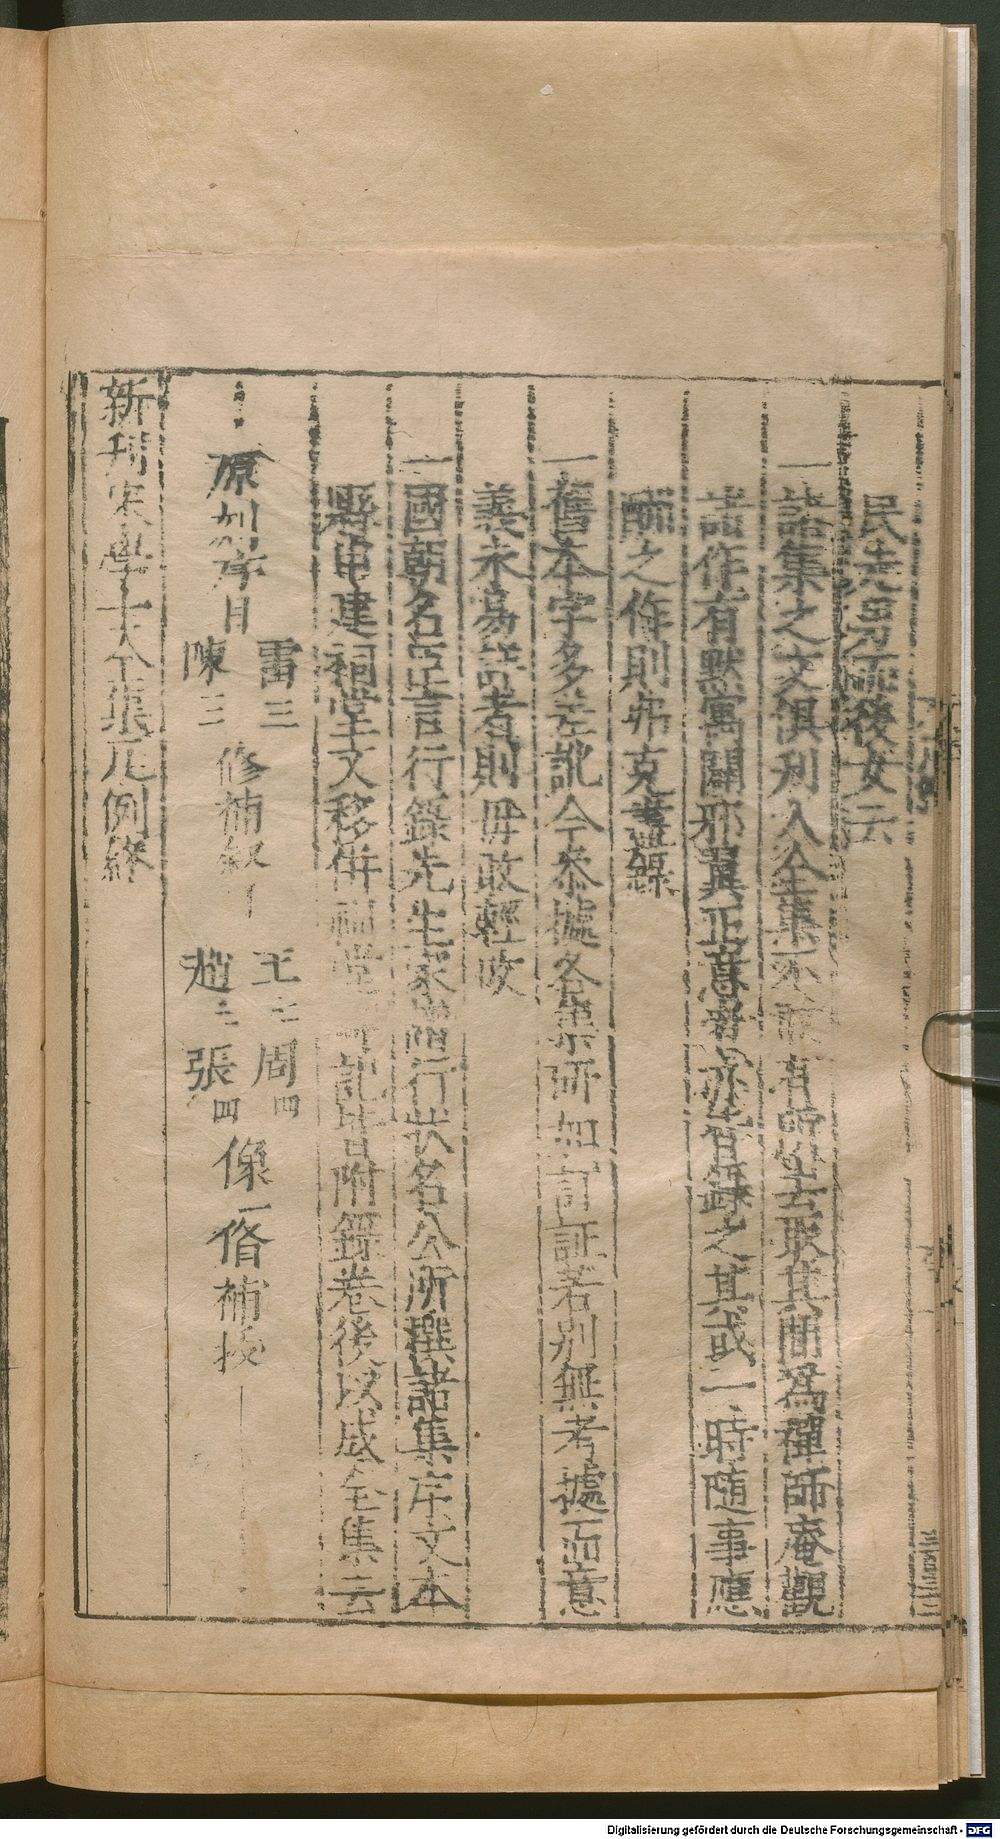 民先男而後女云
一諸集之文俱刊入全集不敢有所去取其間為禪師庵觀
諸作有默寓闢邪翼正意者亦皆錄之其或一時隨事應
酬之作則弗克盡錄
一舊本字多差訛今參據各集研加訂証若別無考據而意
義未為訛者則毋敢輕改
一國朝名臣言行錄先生家行狀名公所撰諸集序文本
縣申建祠堂文移併祠堂記皆附錄卷後以成全集云
原刊序目 雷三 陳三 修補 王 趙 周四 張四 像一 補
新刊宋學士全集凡例終
Digitalisierung gefördert durch die Deutsche Forschungsgemeinschaft - DFG